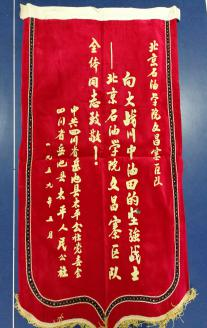 北京石油学院文昌寨区队
向大战川中油田的坚强战士
——北京石油学院文昌寨区队
全体同志致敬！
中共四川省岳池县太平公社党委会
四川省岳池县太平人民公社
一九五九年五月